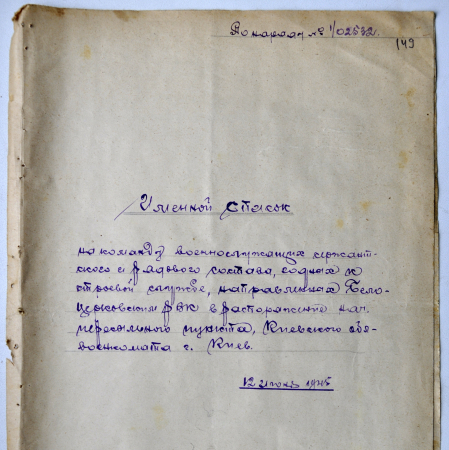 По наряду № 1/02532.
149
Именной список
на команду военнослужащих сержант-
ского и рядового состава, годных к
строевой службе, направленная Бело-
церковским РВК в распоряжение нач
пересыльного пункта, Киевского обл-
военкомата г. Киев.
12 1945